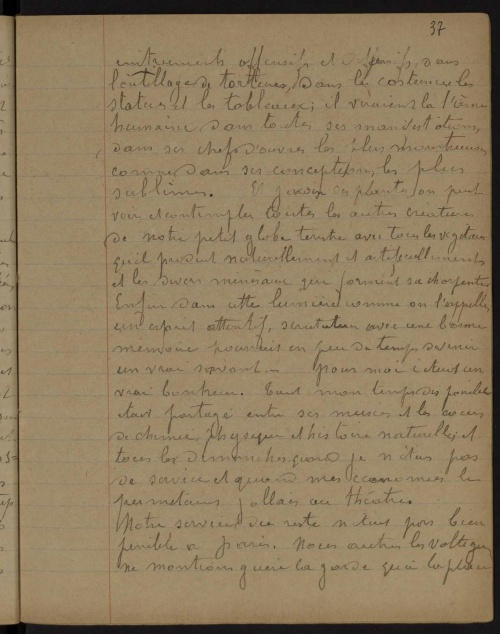 37
instruments offensifs et défensifs, dans
l'outillage de tortures, dans les costumes les
statues et les tableaux; il verraient la
humaine dans toutes ses manifestations,
dans ses chefs d'ouvres les plus monstrueux
comme dans ses conceptions les plus
sublimes. Et ces plantes on peut
voir et contempler toutes les autres creatures
de notre petit globe terrestre avec tous les vegetaux
qu'il produit naturellement et artificiellement
et les divers mineraux qui forment sa charpente
Enfin dans cette lumière comme on l'appelle,
un esprit attentif, scrutateur avec une bonne
memoire pourrait en peu de temps devenir
un vrai savant. pour moi c'etait un
vrai bonheur. Tout mon temps disponible
etait partagé entre ses musees et les cours
de chimie, physique et histoire naturelle; et
tous les dimanches quand je n'etais pas
de service et quand mes economies le
permetaient j'allais au théatre.
Notre service du reste n'etait pas bien
penible à paris. Nous autres les voltigeurs
ne montions guère la garde qu'a la place